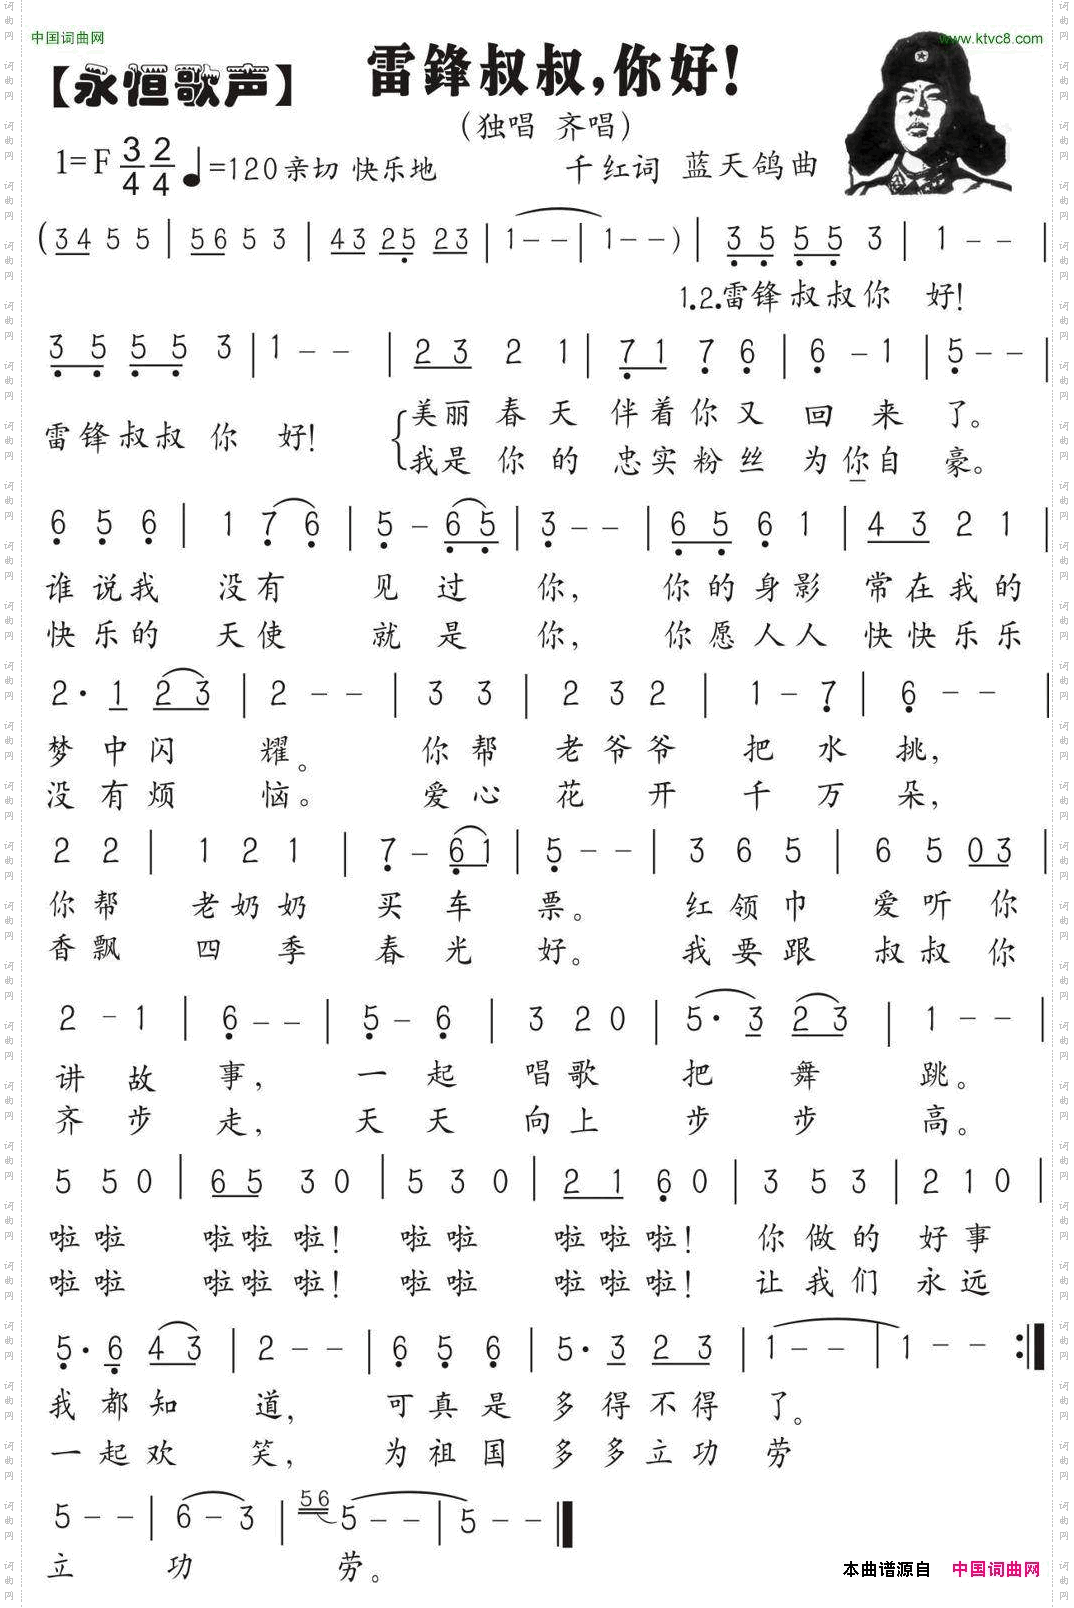 中国词曲网
www.ktvc8.com
【永恒歌声】
雷鋒叔叔,你好!
(独唱 齐唱)
1=F 3/4 2/4 ♩=120亲切 快乐地
千红词 蓝天鸽曲
(3 4 5 5 | 5 6 5 3 | 4 3 2 5 2 3 | 1 - - | 1 - - ) | 3 5 5 5 3 | 1 - - |
1.2.雷锋叔叔你 好!
3 5 5 5 3 | 1 - - | 2 3 2 1 | 7 1 7 6 | 6 - 1 | 5 - - |
雷锋叔叔 你 好! 美丽 春天 伴着你又 回 来 了。
我是 你的 忠实粉丝 为你自 豪。
6 5 6 | 1 7 6 | 5 - 6 5 | 3 - - | 6 5 6 1 | 4 3 2 1 |
谁说我 没有 见过 你, 你的身影 常在我的
快乐的 天使 就是 你, 你愿人人 快快乐乐
2· 1 2 3 | 2 - - | 3 3 | 2 3 2 | 1 - 7 | 6 - - |
梦中闪 耀。 你帮 老爷爷 把水 挑,
没有烦 恼。 爱心 花开 千万 朵,
2 2 | 1 2 1 | 7 - 6 1 | 5 - - | 3 6 5 | 6 5 0 3 |
你帮 老奶奶 买车 票。 红领巾 爱听你
香飘 四季 春光 好。 我要跟 叔叔你
2 - 1 | 6 - - | 5 - 6 | 3 2 0 | 5· 3 2 3 | 1 - - |
讲故 事, 一起 唱歌 把舞 跳。
齐步 走, 天天 向上 步步 高。
5 5 0 | 6 5 3 0 | 5 3 0 | 2 1 6 0 | 3 5 3 | 2 1 0 |
啦啦 啦啦啦! 啦啦 啦啦啦! 你做的 好事
啦啦 啦啦啦! 啦啦 啦啦啦! 让我们 永远
5· 6 4 3 | 2 - - | 6 5 6 | 5· 3 2 3 | 1 - - | 1 - - :|
我都知 道, 可真是 多得不得 了。
一起欢 笑, 为祖国 多多立功 劳
5 - - | 6 - 3 | 56 5 - - | 5 - - ‖
立 功 劳。
本曲谱源自 中国词曲网